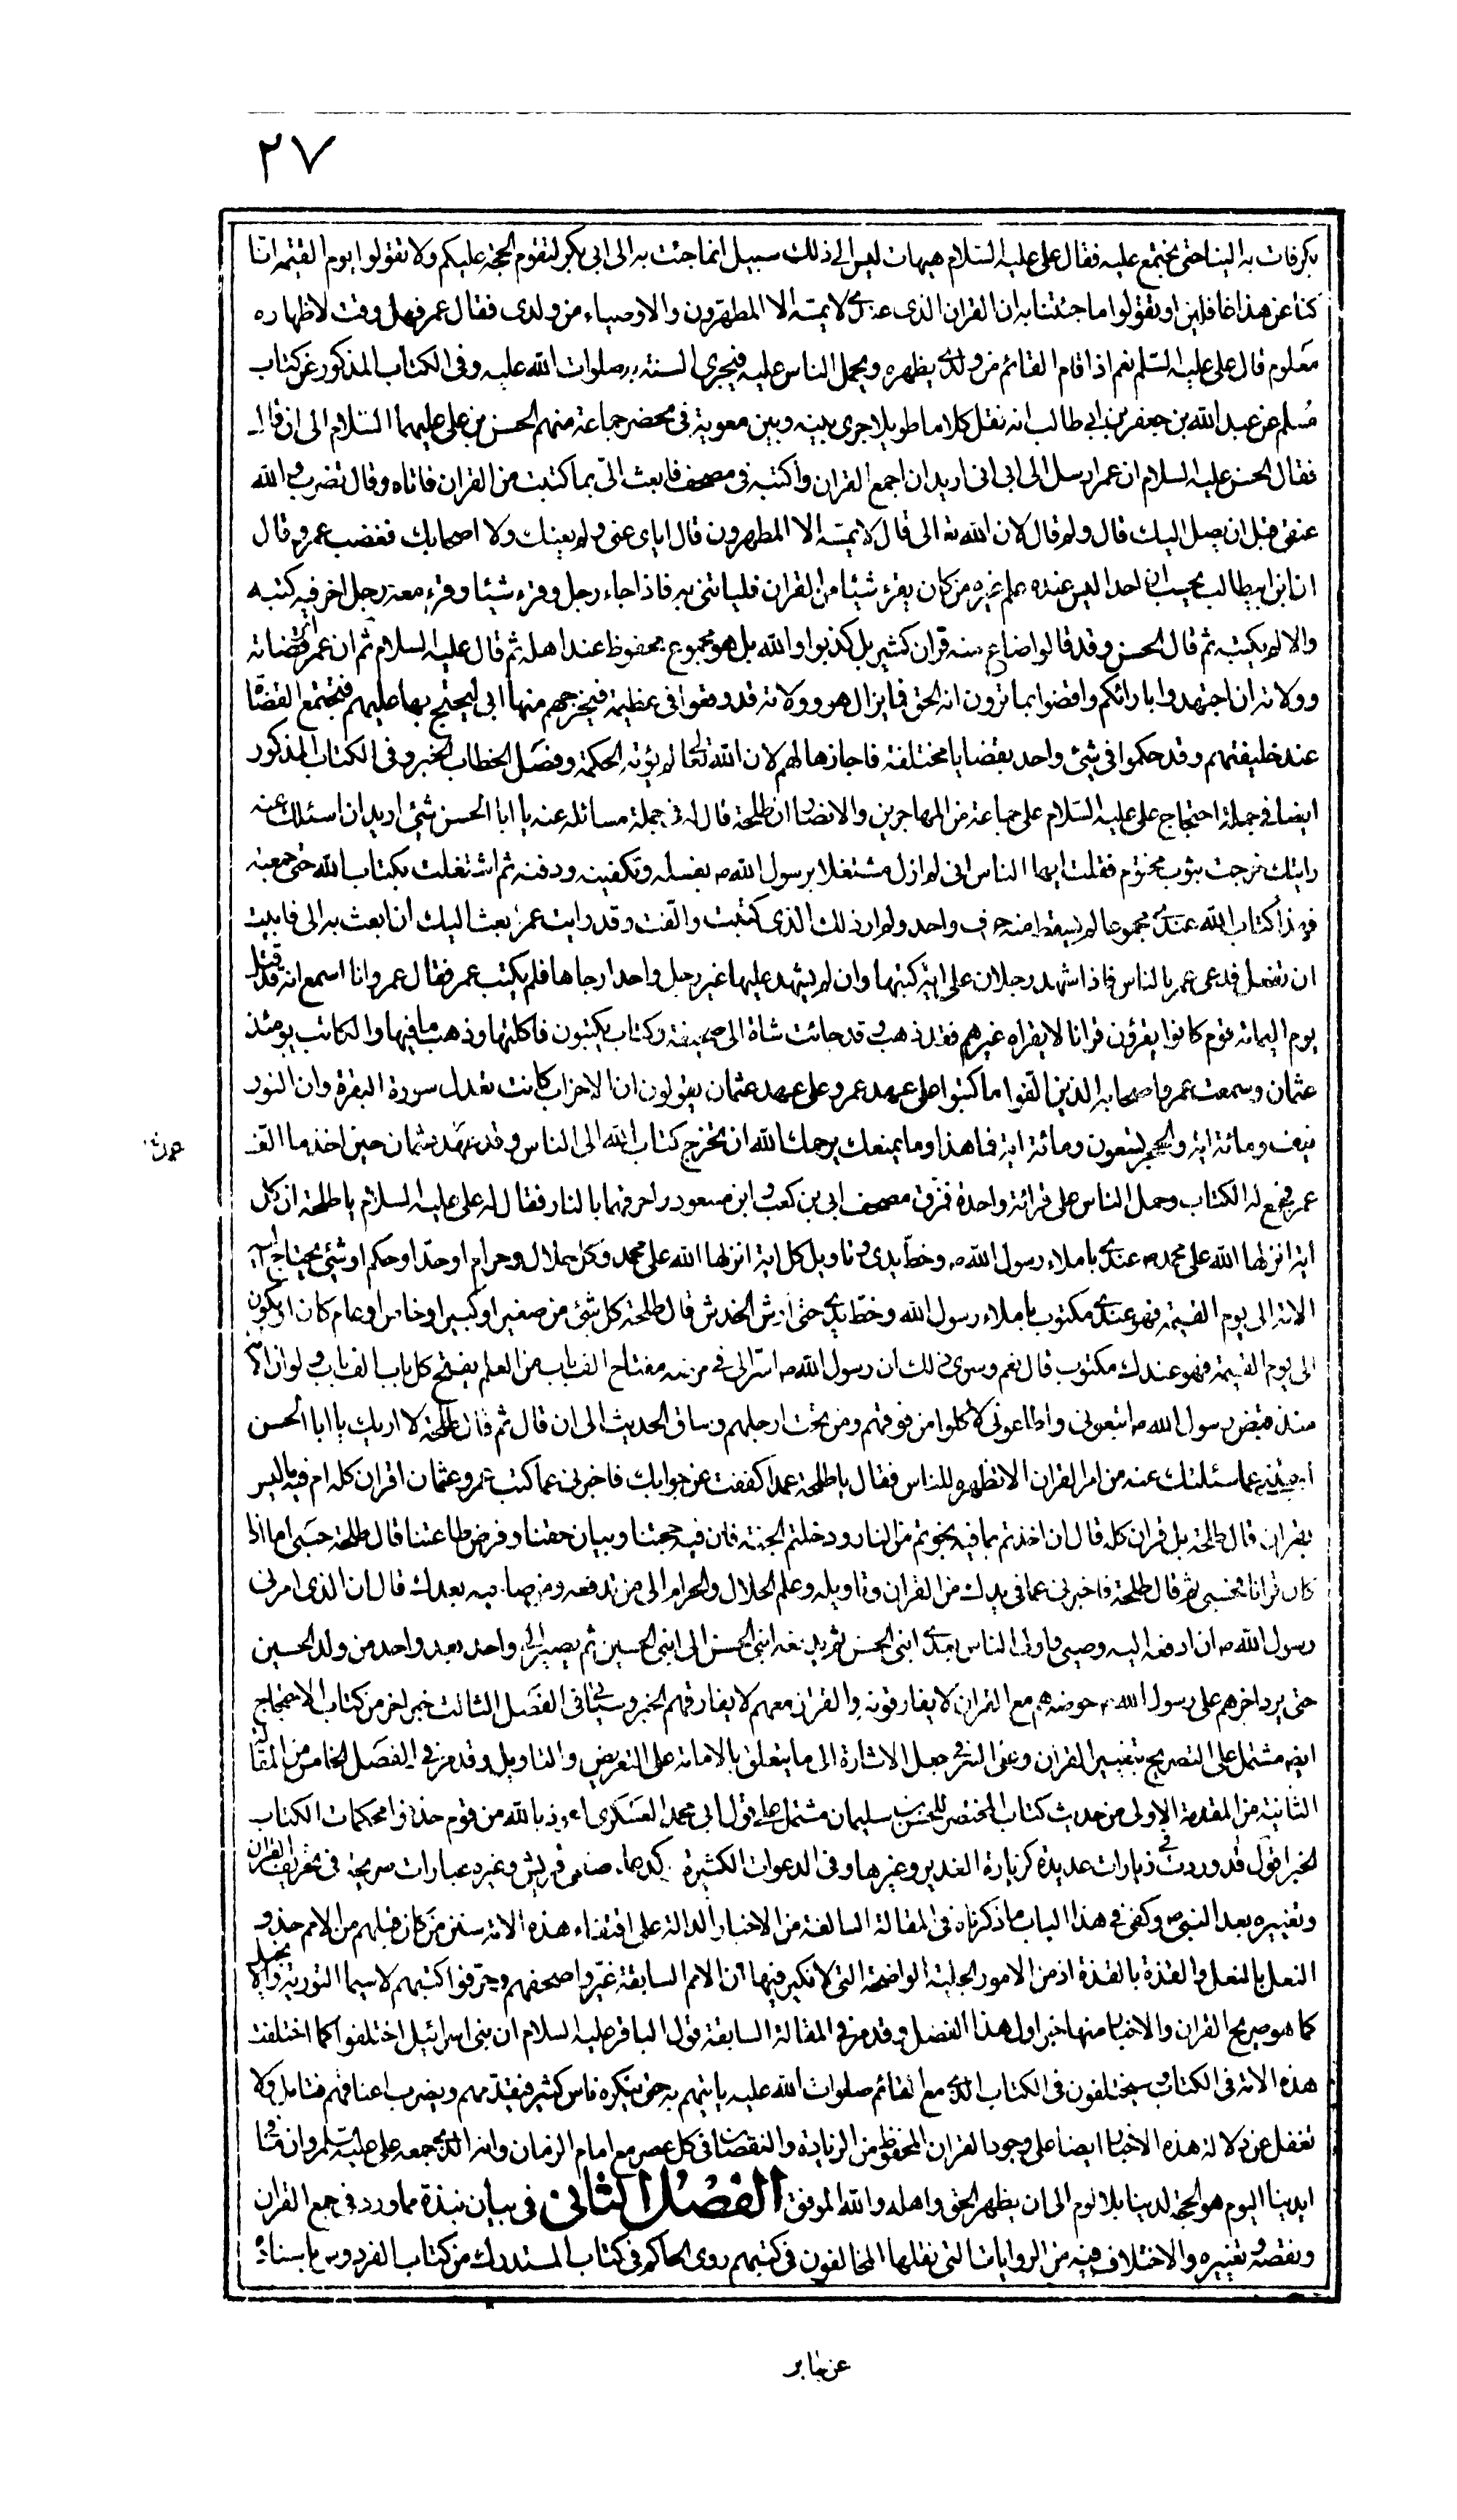 ٢٧
بكر فات به الينا حتى نجتمع عليه فقال على عليه السلام هيهات ليس الى ذلك سبيل انما جئت به الى ابى بكر لتقوم الحجة عليكم ولا تقولوا يوم القيمه انا
كنا عن هذا غافلين او تقولوا ما جئتنا به ان القران الذى عندى لا يمسه الا المطهرون والاوصياء من ولدى فقال عمر فهل وقت لاظهاره
معلوم قال على عليه السلم نعم اذا قام القائم من ولدى يظهره ويحمل الناس عليه فيجرى السنة به صلوات الله عليه وفى الكتاب المذكور عن كتاب
مسلم عن عبد الله بن جعفر بن ابى طالب انه نقل كلاما طويلا جرى بينه وبين معوية فى محضر جماعة منهم الحسن بن على عليهما السلام الى ان قال
فقال الحسن عليه السلام ان عمر ارسل الى ابى انى اريد ان اجمع القران واكتبه فى مصحف فابعث الىّ بما كتبت من القران فاتاه وقال تضرب والله
عنقى قبل ان يصل اليك قال ولم قال لان الله تعالى قال لا يمسه الا المطهرون قال اياى عنى ولم يعينك ولا اصحابك فغضب عمر وقال
ان ابن ابيطالب يحسب ان احدا ليس عنده علم غيره من كان يقرء شيئا من القران فلياتنى به فاذا جاء رجل وقرء شيئا وقرء معه رجل اخر فيه كتبه
والا لم يكتبه ثم قال الحسن وقد قالوا ضاع منه قران كثير بل كذبوا والله بل هو مجموع محفوظ عند اهله ثم قال عليه السلام ثم ان عمر امر قضاته
وولاته ان اجتهدوا بارائكم واقضوا بما ترون انه الحق فما يزال هو وولاته قد وقعوا فى عظيمة فيخرجهم منها ابى ليحتج بها عليهم فتجتمع القضاة
عند خليفتهم وقد حكموا فى شئ واحد بقضايا مختلفة فاجازها لهم لان الله تعالى لم يؤته الحكمة وفصل الخطاب الخبر وفى الكتاب المذكور
ايضا فى جملة احتجاج على عليه السلام على جماعة من المهاجرين والانصار ان طلحة قال له فى جملة مسائله عنه يا ابا الحسن شئ اريد ان اسئلك عنه
رايتك خرجت بثوب مختوم فقلت ايها الناس انى لم ازل مشتغلا برسول الله ص بغسله وتكفينه ودفنه ثم اشتغلت بكتاب الله حتى جمعته
فهذا كتاب الله عندى مجموعا لم يسقط منه حرف واحد ولم ار ذلك الذى كتبت والفت وقد رايت عمر بعث اليك ان ابعث به الى فابيت
ان تفعل فدعى عمر بالناس فاذا شهد رجلان على اية كتبها وان لم يشهد عليها غير رجل واحد ارجاها فلم يكتب عمر فقال عمر وانا اسمع انه قد قتل
يوم اليمامة قوم كانوا يقرؤن قرانا لا يقراه غيرهم فقد ذهب وقد جائت شاة الى صحيفة وكتاب يكتبون فاكلتها وذهب ما فيها والكاتب يومئذ
عثمان وسمعت عمر واصحابه الذين الفوا ما كتبوا على عهد عمر وعلى عهد عثمان يقولون ان الاحزاب كانت تعدل سورة البقرة وان النور
نيف ومائة اية والحجر تسعون ومائة اية فما هذا وما يمنعك يرحمك الله ان تخرج كتاب الله الى الناس وقد عهد عثمان حين اخذ ما الف
عمر فجمع له الكتاب وحمل الناس على قرائة واحدة فمزق مصحف ابى بن كعب وابن مسعود واحرقهما بالنار فقال له على عليه السلام يا طلحة ان كل
اية انزلها الله على محمد ص عندى باملاء رسول الله ص وخط يدى وتاويل كل اية انزلها الله على محمد وكل حلال وحرام او حد او حكم او شئ يحتاج اليه
الامة الى يوم القيمة فهو عندى مكتوب باملاء رسول الله وخط يدى حتى ارش الخدش قال طلحة كل شئ من صغير او كبير او خاص او عام كان او يكون
الى يوم القيمة فهو عندك مكتوب قال نعم وسوى ذلك ان رسول الله ص اسر الى فى مرضه مفتاح الف باب من العلم يفتح كل باب الف باب ولو ان الامة
منذ قبض رسول الله ص اتبعونى واطاعونى لاكلوا من فوقهم ومن تحت ارجلهم وساق الحديث الى ان قال ثم قال طلحة لا اريك يا ابا الحسن
اجبتنى عما سئلتك عنه من امر القران الا تظهره للناس فقال يا طلحة عمدا كففت عن جوابك فاخبرنى عما كتب عمر وعثمان اقران كله ام فيه ما ليس
بقران قال طلحة بل قران كله قال ان اخذتم بما فيه نجوتم من النار ودخلتم الجنة فان فيه حجتنا وبيان حقنا وفرض طاعتنا قال طلحة حسبى اما اذا
كان قرانا فحسبى ثم قال طلحة فاخبرنى عما فى يدك من القران وتاويله وعلم الحلال والحرام الى من تدفعه ومن صاحبه بعدك قال ان الذى امرنى
رسول الله ص ان ادفعه اليه وصيى واولى الناس بعدى ابنى الحسن ثم يدفعه ابنى الحسن الى ابنى الحسين ثم يصير الى واحد بعد واحد من ولد الحسين
حتى يرد اخرهم على رسول الله ص حوضه هم مع القران لا يفارقونه والقران معهم لا يفارقهم الخبر وسياتى فى الفصل الثالث خبر اخر من كتاب الاحتجاج
ايضا مشتمل على التصريح بتغيير القران وعن النبى جعل الاشارة الى ما يتعلق بالامامة على التعريض والتاويل وقد مر فى الفصل الخامس من المقالة
الثانية من المقدمة الاولى من حديث كتاب المختصر للحسن بن سليمان مشتمل على قول ابى محمد العسكرى اعوذ بالله من قوم حذفوا محكمات الكتاب
الخبر اقول قد وردت فى زيارات عديدة كزيارة الغدير وغيرها وفى الدعوات الكثيرة كدعاء صنمى قريش وغيره عبارات صريحة فى تحريف القران
وتغييره بعد النبى ص وكفى فى هذا الباب ما ذكرناه فى المقالة السالفة من الاخبار الدالة على اقتفاء هذه الامة سنن من كان قبلهم من الامم حذو
النعل بالنعل والقذة بالقذة اذ من الامور الجلية الواضحة التى لا نكير فيها ان الامم السابقة غيروا صحفهم وحرفوا كتبهم لاسيما التورية والانجيل
كما هو صريح القران والاخبار منها خبر اول هذا الفصل وقد مر فى المقالة السابقة قول الباقر عليه السلام ان بنى اسرائيل اختلفوا كما اختلفت
هذه الامة فى الكتاب وسيختلفون فى الكتاب الذى مع القائم صلوات الله عليه ياتيهم به حتى ينكره ناس كثير فيقدمهم ويضرب اعناقهم فتامل ولا
تغفل عن دلالة هذه الاخبار ايضا على وجود القران المحفوظ من الزيادة والنقصان فى كل عصر مع امام الزمان وانه الذى جمعه على عليه السلم وان ما فى
ايدينا اليوم هو الحجة لدينا بلا لوم الى ان يظهر الحق واهله والله الموفق الفصل الثانى فى بيان نبذة مما ورد فى جمع القران
ونقصه وتغييره والاختلاف فيه من الروايات التى نقلها المخالفون فى كتبهم روى الحاكم فى كتاب المستدرك من كتاب الفردوس باسناده
عن جابر